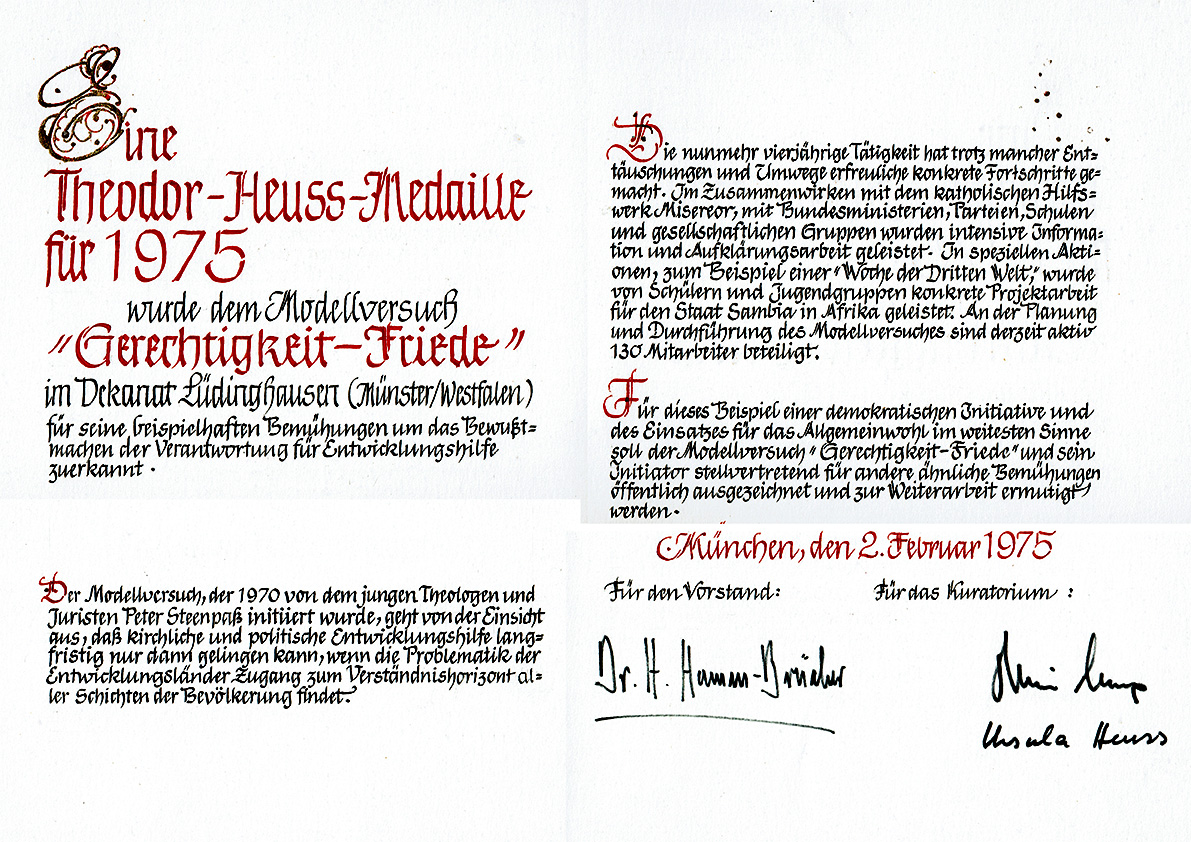 Eine
Theodor-Heuss-Medaille
für 1975
wurde dem Modellversuch
"Gerechtigkeit-Friede"
im Dekanat Lüdinghausen (Münster/Westfalen)
für seine beispielhaften Bemühungen um das Bewußt=
machen der Verantwortung für Entwicklungshilfe
zuerkannt.
Der Modellversuch, der 1970 von dem jungen Theologen und
Juristen Peter Steenpaß initiiert wurde, geht von der Einsicht
aus, daß kirchliche und politische Entwicklungshilfe lang=
fristig nur dann gelingen kann, wenn die Problematik der
Entwicklungsländer Zugang zum Verständnishorizont al=
ler Schichten der Bevölkerung findet.
Die nunmehr vierjährige Tätigkeit hat trotz mancher Ent=
täuschungen und Umwege erfreuliche konkrete Fortschritte ge=
macht. Im Zusammenwirken mit dem katholischen Hilfs=
werk Misereor, mit Bundesministerien, Parteien, Schulen
und gesellschaftlichen Gruppen wurden intensive Informa=
tion und Aufklärungsarbeit geleistet. In speziellen Akti=
onen, zum Beispiel einer "Woche der Dritten Welt," wurde
von Schülern und Jugendgruppen konkrete Projektarbeit
für den Staat Sambia in Afrika geleistet. An der Planung
und Durchführung des Modellversuches sind derzeit aktiv
130 Mitarbeiter beteiligt.
Für dieses Beispiel einer demokratischen Initiative und
des Einsatzes für das Allgemeinwohl im weitesten Sinne
soll der Modellversuch "Gerechtigkeit-Friede" und sein
Initiator stellvertretend für andere ähnliche Bemühungen
öffentlich ausgezeichnet und zur Weiterarbeit ermutigt
werden.
München, den 2. Februar 1975
Für den Vorstand: Für das Kuratorium:
Dr. H. Hamm-Brücher
Ursula Heuss